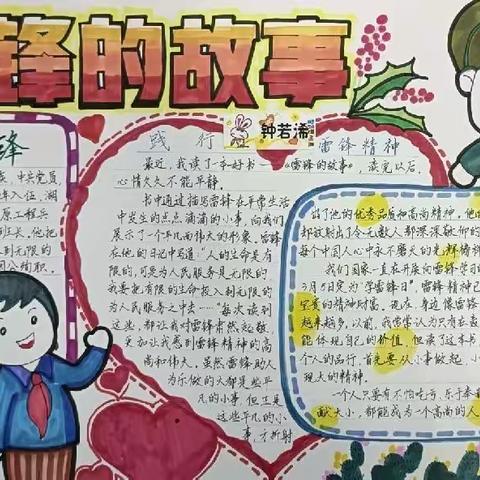 锋的故事
锋
中共党员,
年入伍,湖
原工程兵
班长,他把
到无限的
践行
钟若浠
雷锋精神
最近,我读了一本好书——《雷锋的故事》,读完以后,
心情久久不能平静。
书中通过描写雷锋在平常生活
中发生的点点滴滴的小事,向我们
展示了一个平凡而伟大的形象,雷锋
在他的日记中写道:“人的生命是有
限的,可是为人民服务是无限的
我要把有限的生命投入到无限的
为人民服务之中去……”每次读到
这些,都让我对雷锋肃然起敬,
更加让我感到雷锋精神的高
尚和伟大。虽然雷锋助人
为乐做的大都是些平
凡的小事,但正是
这些平凡的小
事,才折射
出了他的优秀品质和高尚精神,他的
都放射出了令无数人都深深敬仰的
每个中国人心中永不磨灭的光辉榜样
我们国家一直在开展向雷锋学习的
3月5日定为“学雷锋日”。雷锋精神已
宝贵的精神财富,现在,身边像雷锋
越来越多,以前,我常常认为只有在
能体现自己的价值,但读了这本书
个人的品行,首先要从小事做起,小
现大的精神。
一个人只要有不怕吃苦,乐于奉
献大小,都能成为一个高尚的人